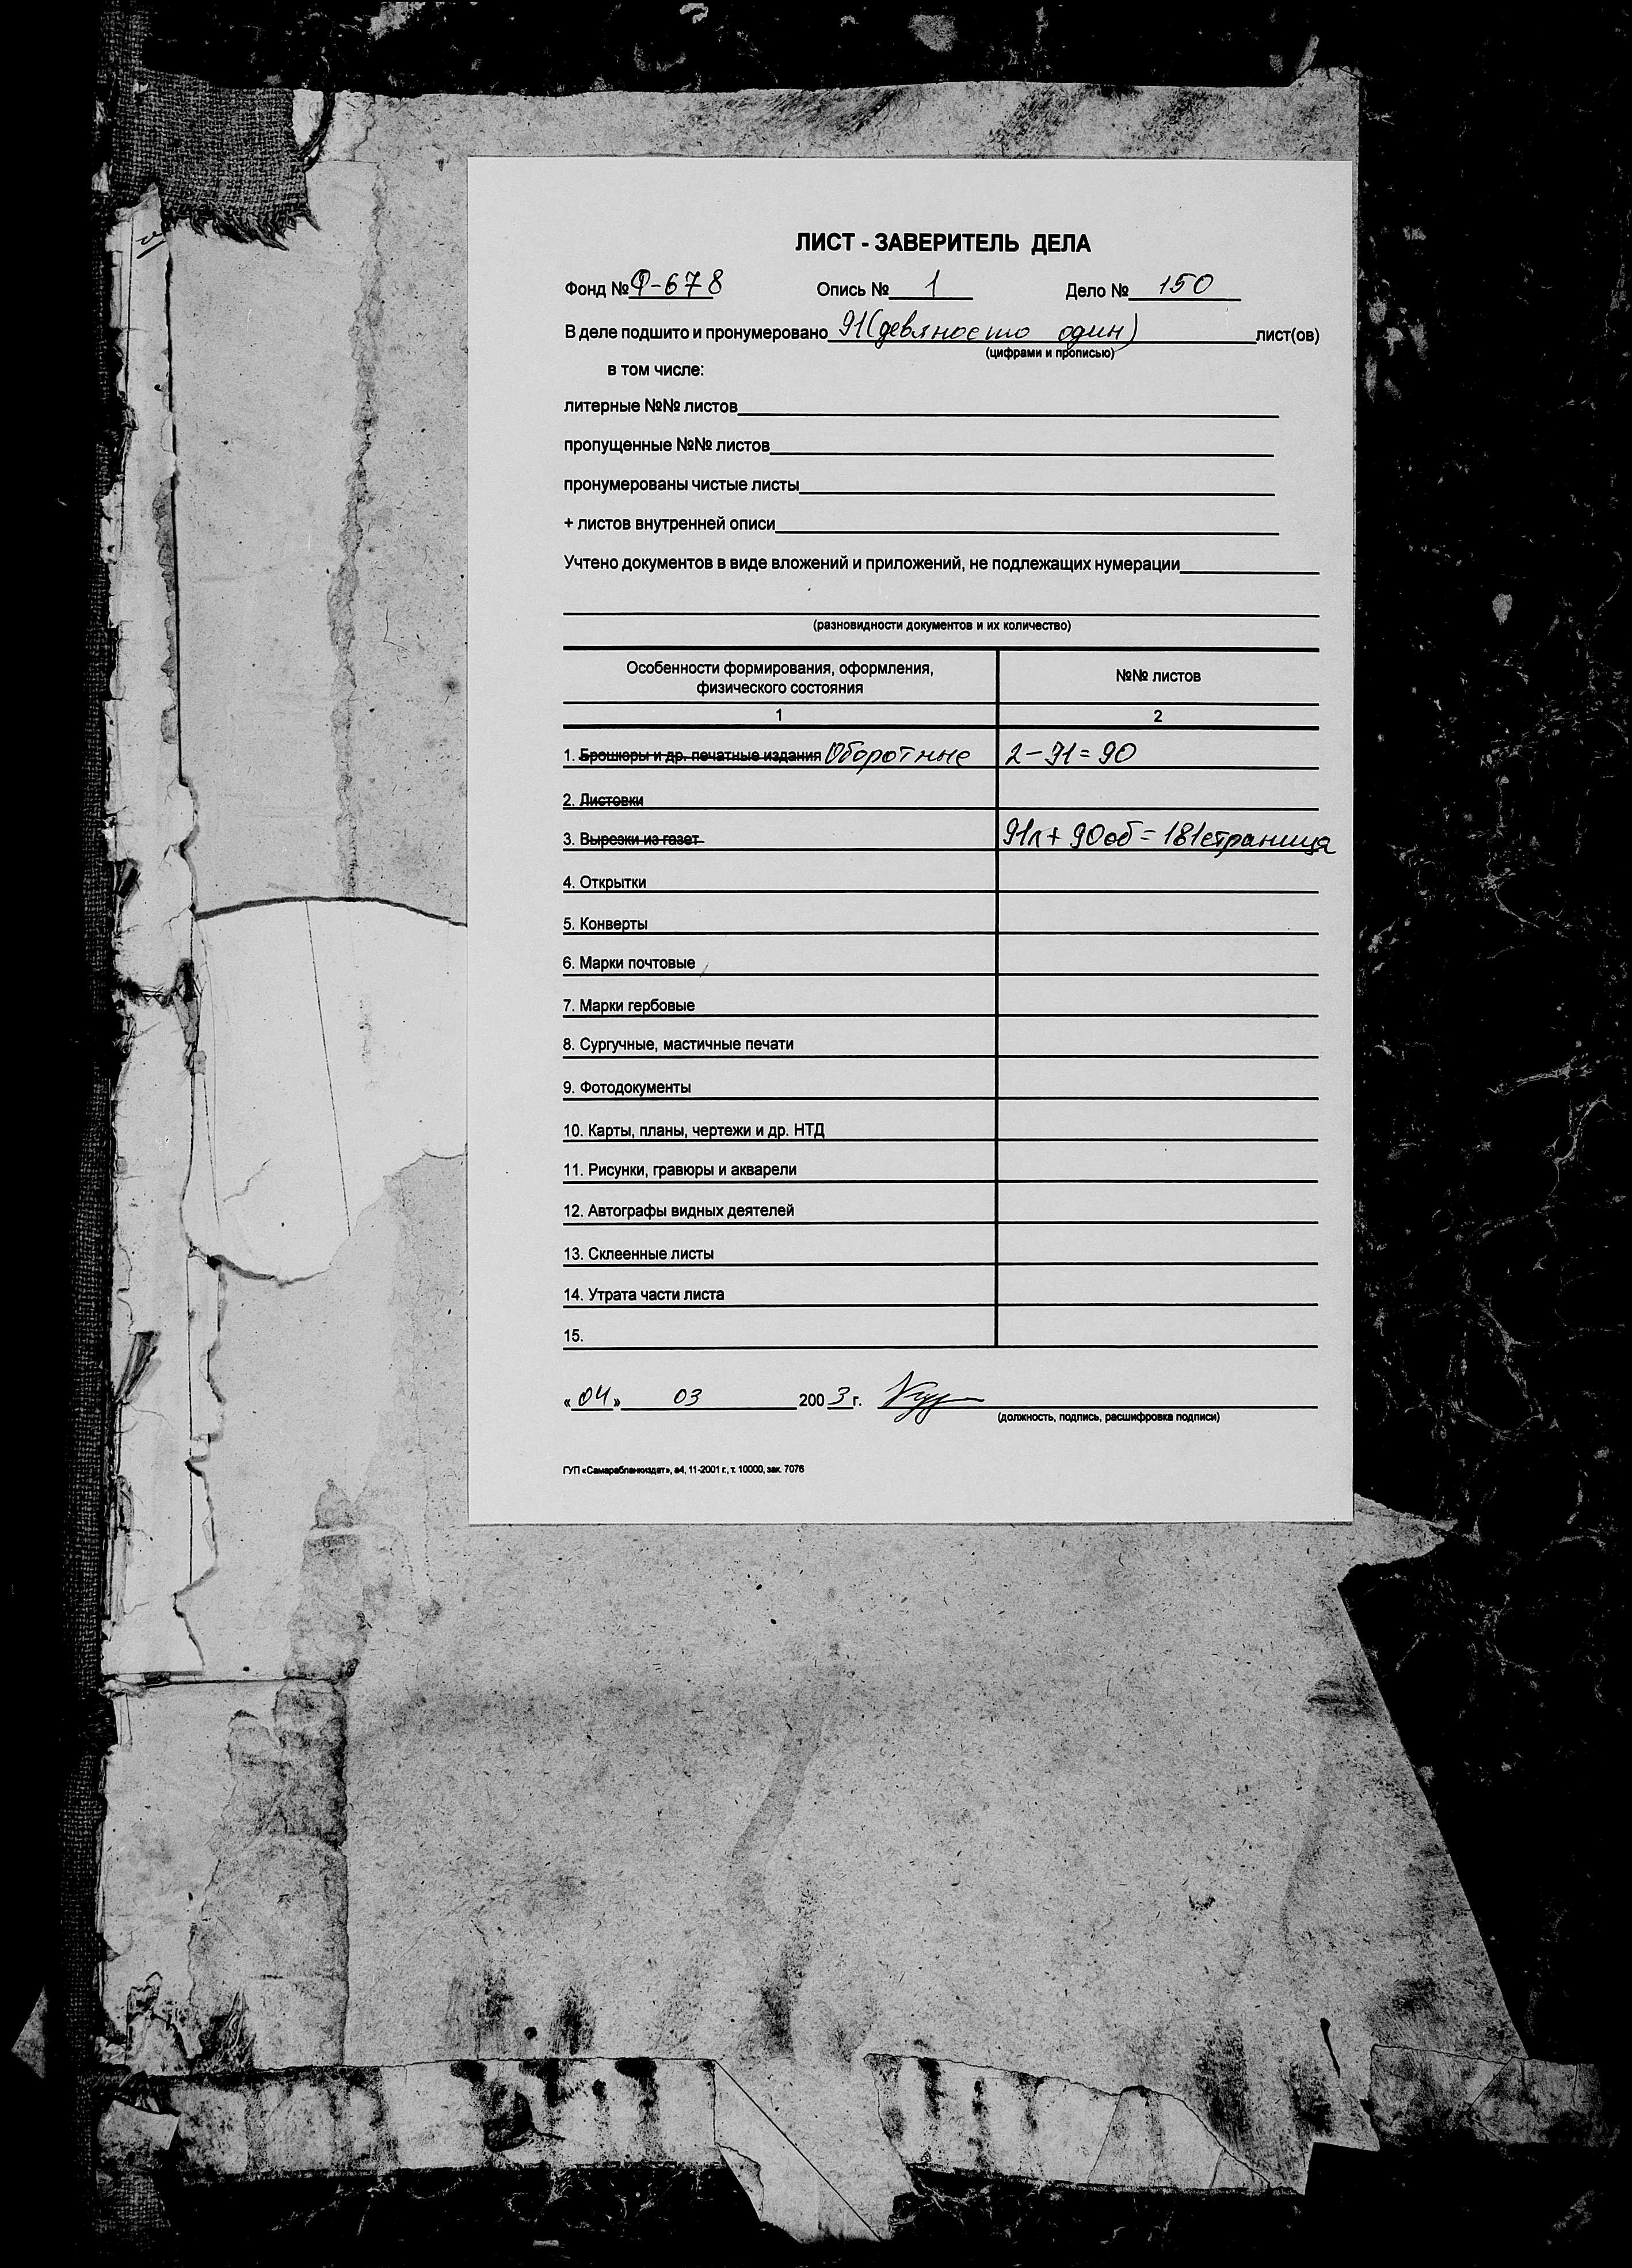 ЛИСТ - ЗАВЕРИТЕЛЬ ДЕЛА
Фонд № Ф-678 Опись № 1 Дело № 150
В деле подшито и пронумеровано 91 (девяносто один) лист(ов)
(цифрами и прописью)
в том числе:
литерные №№ листов
пропущенные №№ листов
пронумерованы чистые листы
+ листов внутренней описи
Учтено документов в виде вложений и приложений, не подлежащих нумерации
(разновидности документов и их количество)
Особенности формирования, оформления,
физического состояния
№№ листов
1 2
1. Брошюры и др. печатные издания Оборотные 2-91=90
2. Листовки
3. Вырезки из газет 91л+90об=181страница
4. Открытки
5. Конверты
6. Марки почтовые
7. Марки гербовые
8. Сургучные, мастичные печати
9. Фотодокументы
10. Карты, планы, чертежи и др. НТД
11. Рисунки, гравюры и акварели
12. Автографы видных деятелей
13. Склеенные листы
14. Утрата части листа
15.
«04» 03 2003 г.
(должность, подпись, расшифровка подписи)
ГУП «Самарабланкиздат», а4, 11-2001 г., т. 10000, зак. 7076